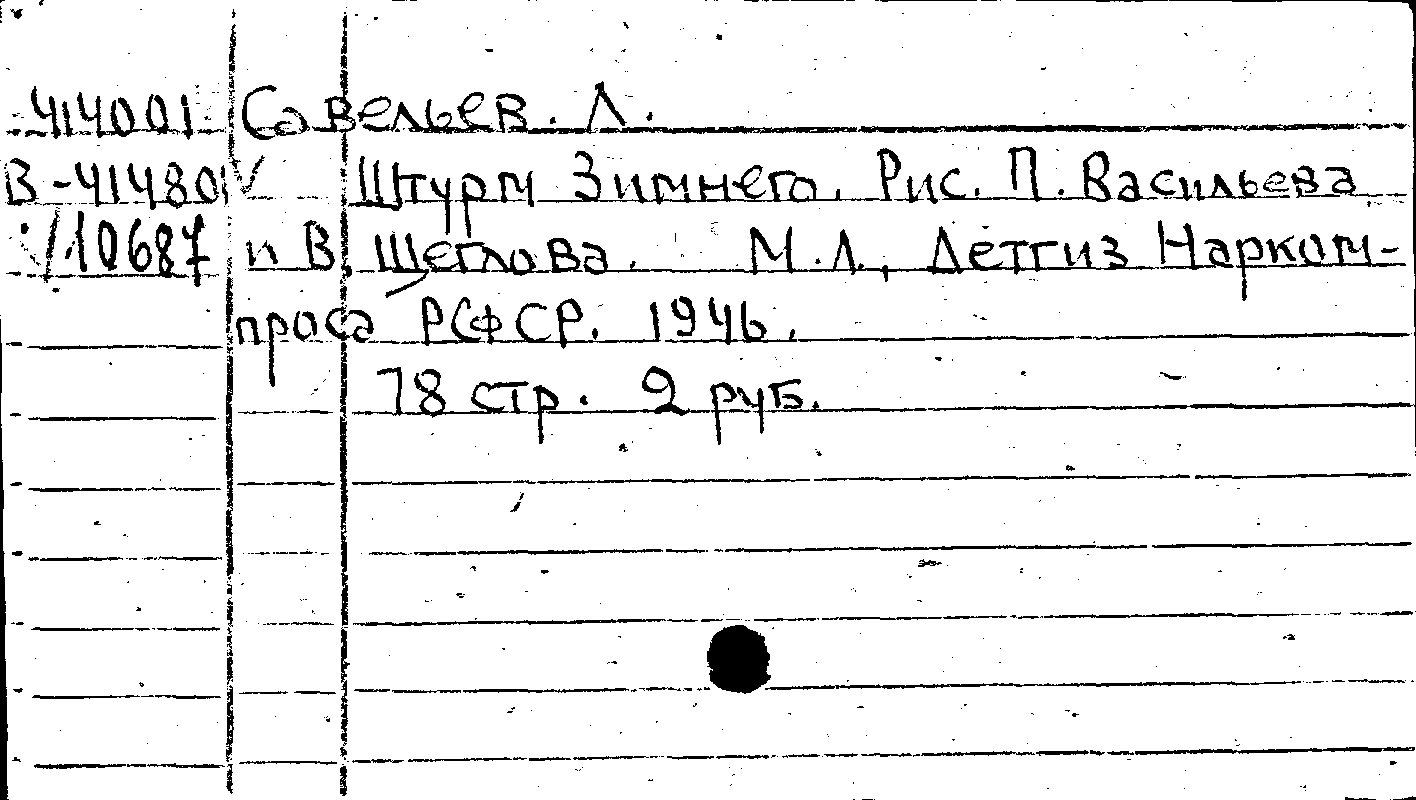 -414001 Савельев. Л.
В-41480 V Штурм Зимнего. Рис. П. Васильева
V10687 и В. Щеглова. М.Л., Детгиз Нарком-
проса РСФСР. 1946.
78 стр. 2 руб.